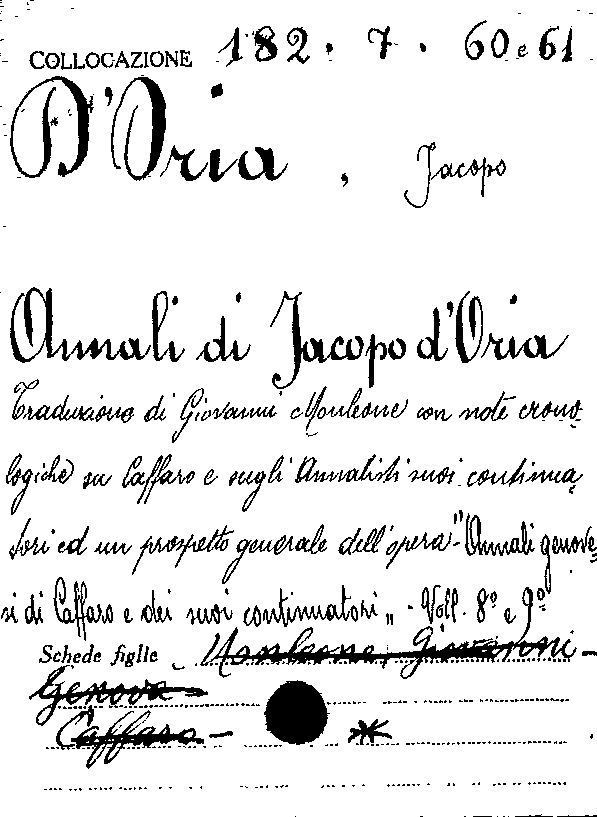 COLLOCAZIONE 182. 7. 60 e 61
D'Oria, Jacopo
Annali di Jacopo d'Oria
Traduzione di Giovanni Monleone con note crono-
logiche su Caffaro e sugli Annalisti suoi continua-
tori ed un prospetto generale dell'opera - "Annali genove-
si di Caffaro e dei suoi continatori„ - Voll. 8º e 9º
Schede figlie - Monleone, Giovanni -
Genova -
Caffaro - *